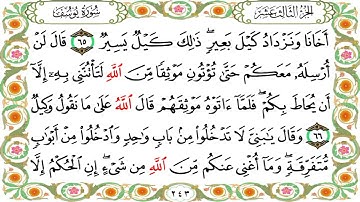 الجزء الثالث عشر
سورة يوسف
أَخَانَا وَنَزْدَادُ كَيْلَ بَعِيرٍ ۖ ذَٰلِكَ كَيْلٌ يَسِيرٌ ٦٥ قَالَ لَنْ
أُرْسِلَهُ مَعَكُمْ حَتَّىٰ تُؤْتُونِ مَوْثِقًا مِّنَ اللَّهِ لَتَأْتُنَّنِي بِهِ إِلَّا
أَن يُحَاطَ بِكُمْ ۖ فَلَمَّا ءَاتَوْهُ مَوْثِقَهُمْ قَالَ اللَّهُ عَلَىٰ مَا نَقُولُ وَكِيلٌ
٦٦ وَقَالَ يَٰبَنِيَّ لَا تَدْخُلُوا مِن بَابٍ وَٰحِدٍ وَادْخُلُوا مِنْ أَبْوَٰبٍ
مُّتَفَرِّقَةٍ ۖ وَمَا أُغْنِي عَنكُم مِّنَ اللَّهِ مِن شَيْءٍ ۖ إِنِ الْحُكْمُ إِلَّا
٢٤٣